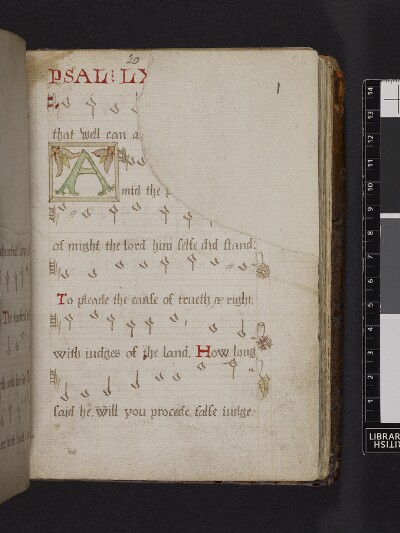 20
PSAL: LX
1
that well can a
A
mid the p
of might the lord him selfe did stand:
To pleade the cause of trueth & right,
with iudges of the land. How long
said he, will you procede, false iudge